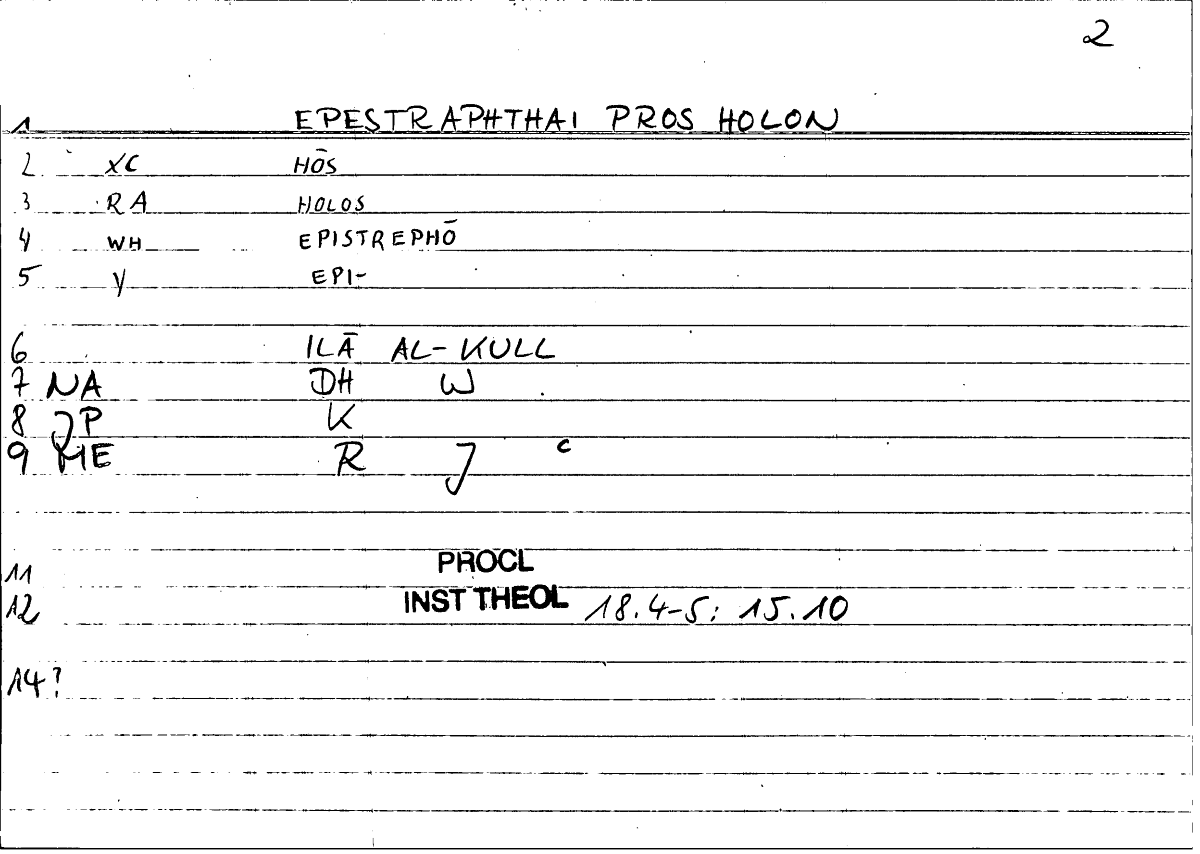 2
1 EPESTRAPHTHAI PROS HOLON
2 XC HŌS
3 RA HOLOS
4 WH EPISTREPHŌ
5 Y EPI-
6 ILĀ AL-KULL
7 NA DH W
8 JP K
9 ME R J c
11 PROCL
12 INST THEOL 18.4-5: 15.10
14?